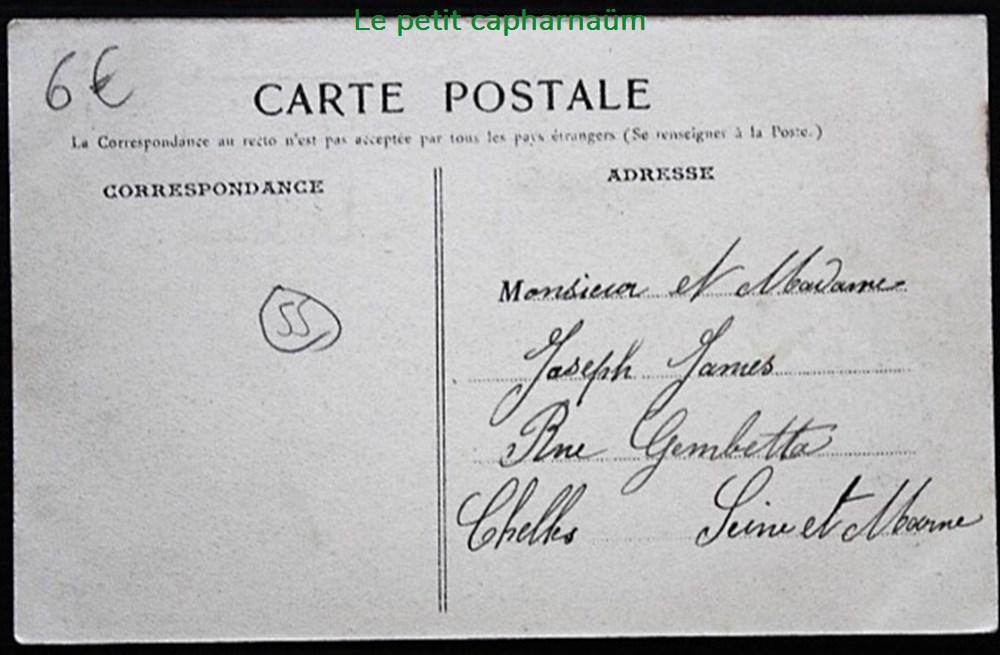 Le petit capharnaüm
6€
CARTE POSTALE
La Correspondance au recto n'est pas acceptée par tous les pays étrangers (Se renseigner à la Poste.)
CORRESPONDANCE
55
ADRESSE
Monsieur et Madame
Joseph James
Rue Gembetta
Chelles Seine et Marne